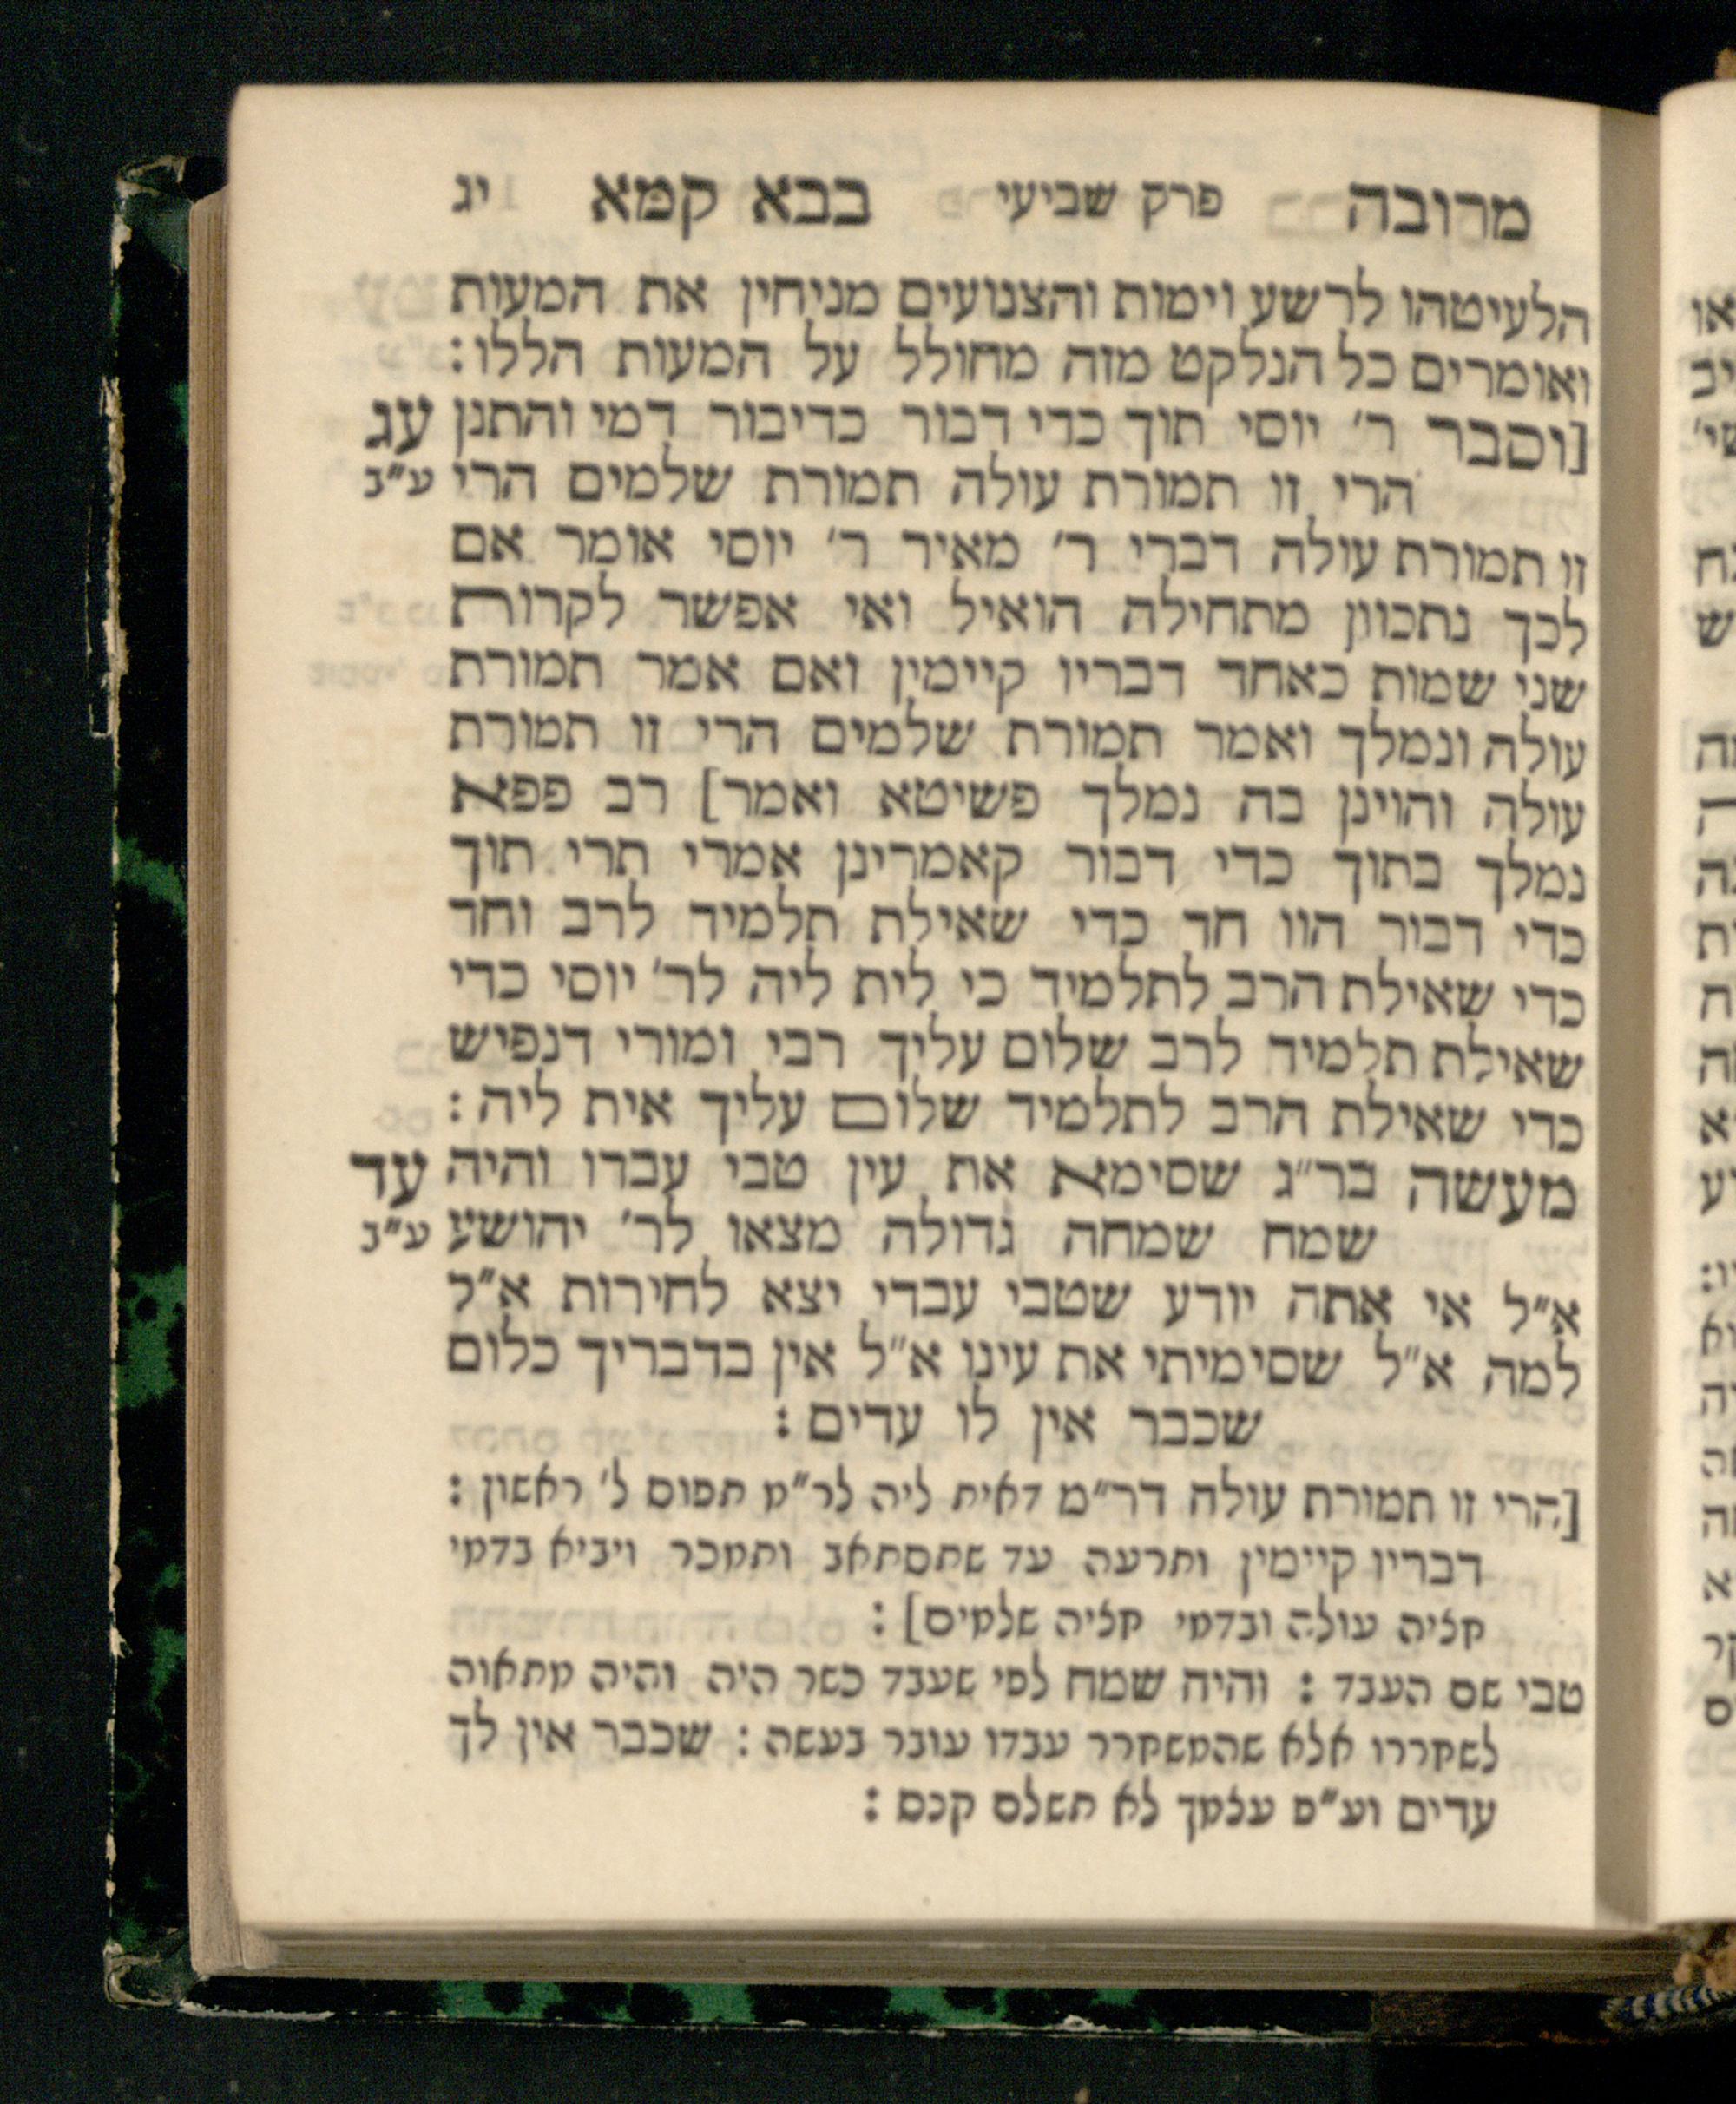 מרובה פרק שביעי בבא קמא יג
הלעיטהו לרשע וימות והצנועים מניחין את המעות
ואומרים כל הנלקט מזה מחולל על המעות הללו:
[וסבר ר׳ יוסי תוך כדי דבור כדיבור דמי והתנן עג
הרי זו תמורת עולה תמורת שלמים הרי ע״ב
זו תמורת עולה דברי ר׳ מאיר ר׳ יוסי אומר אם
לכך נתכוון מתחילה הואיל ואי אפשר לקרות
שני שמות כאחד דבריו קיימין ואם אמר תמורת
עולה ונמלך ואמר תמורת שלמים הרי זו תמורת
עולה והוינן בה נמלך פשיטא ואמר] רב פפא
נמלך בתוך כדי דבור קאמרינן אמרי תרי תוך
כדי דבור הוו חד כדי שאילת תלמיד לרב וחד
כדי שאילת הרב לתלמיד כי לית ליה לר׳ יוסי כדי
שאילת תלמיד לרב שלום עליך רבי ומורי דנפיש
כדי שאילת הרב לתלמיד שלום עליך אית ליה:
מעשה בר״ג שסימא את עין טבי עבדו והיה עד
שמח שמחה גדולה מצאו לר׳ יהושע ע״ב
א״ל אי אתה יודע שטבי עבדי יצא לחירות א״ל
למה א״ל שסימיתי את עינו א״ל אין בדבריך כלום
שכבר אין לו עדים:
[הרי זו תמורת עולה דר״מ דאית ליה לר״מ תפוס ל׳ ראשון:
דבריו קיימין ותרעה עד שתסתאב ותמכר ויביא בדמי
חציה עולה ובדמי חציה שלמים]:
טבי שם העבד: והיה שמח לפי שעבד כשר היה והיה מתאוה
לשחררו אלא שהמשחרר עבדו עובר בעשה: שכבר אין לך
עדים וע״פ עצמך לא תשלם קנס:
או